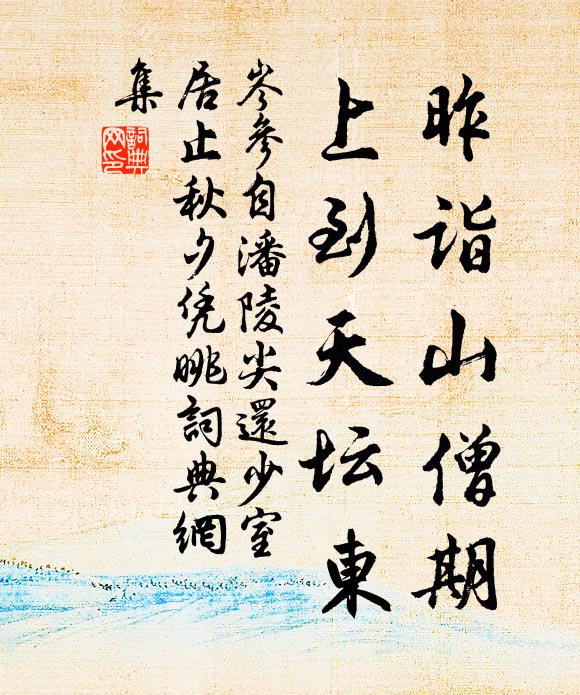 昨詣山僧期
上到天坛東
岑參自潘陵尖還少室
居止秋夕凭眺詞典網
集
詞典
网印